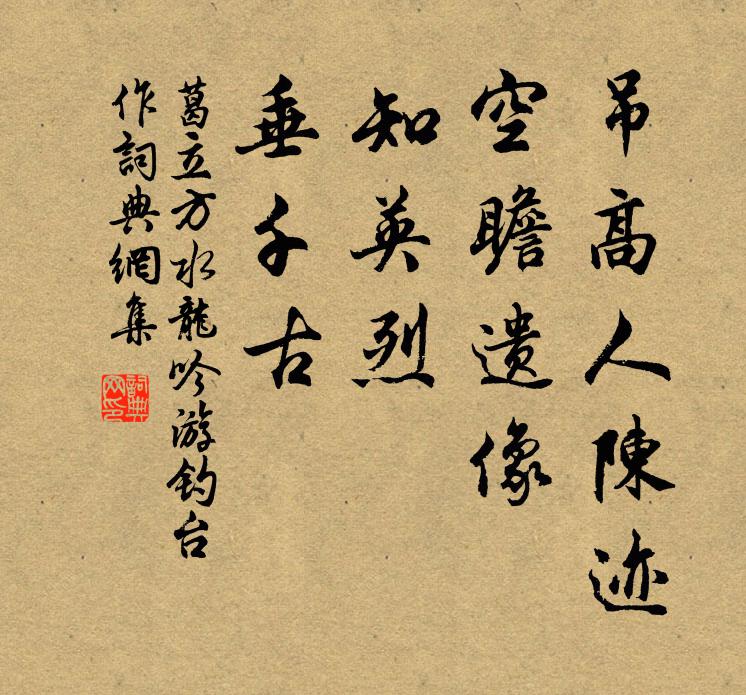 吊高人陳迹
空瞻遺像
知英烈
垂千古
葛立方水龍吟游釣台
作詞典網集
詞典網印